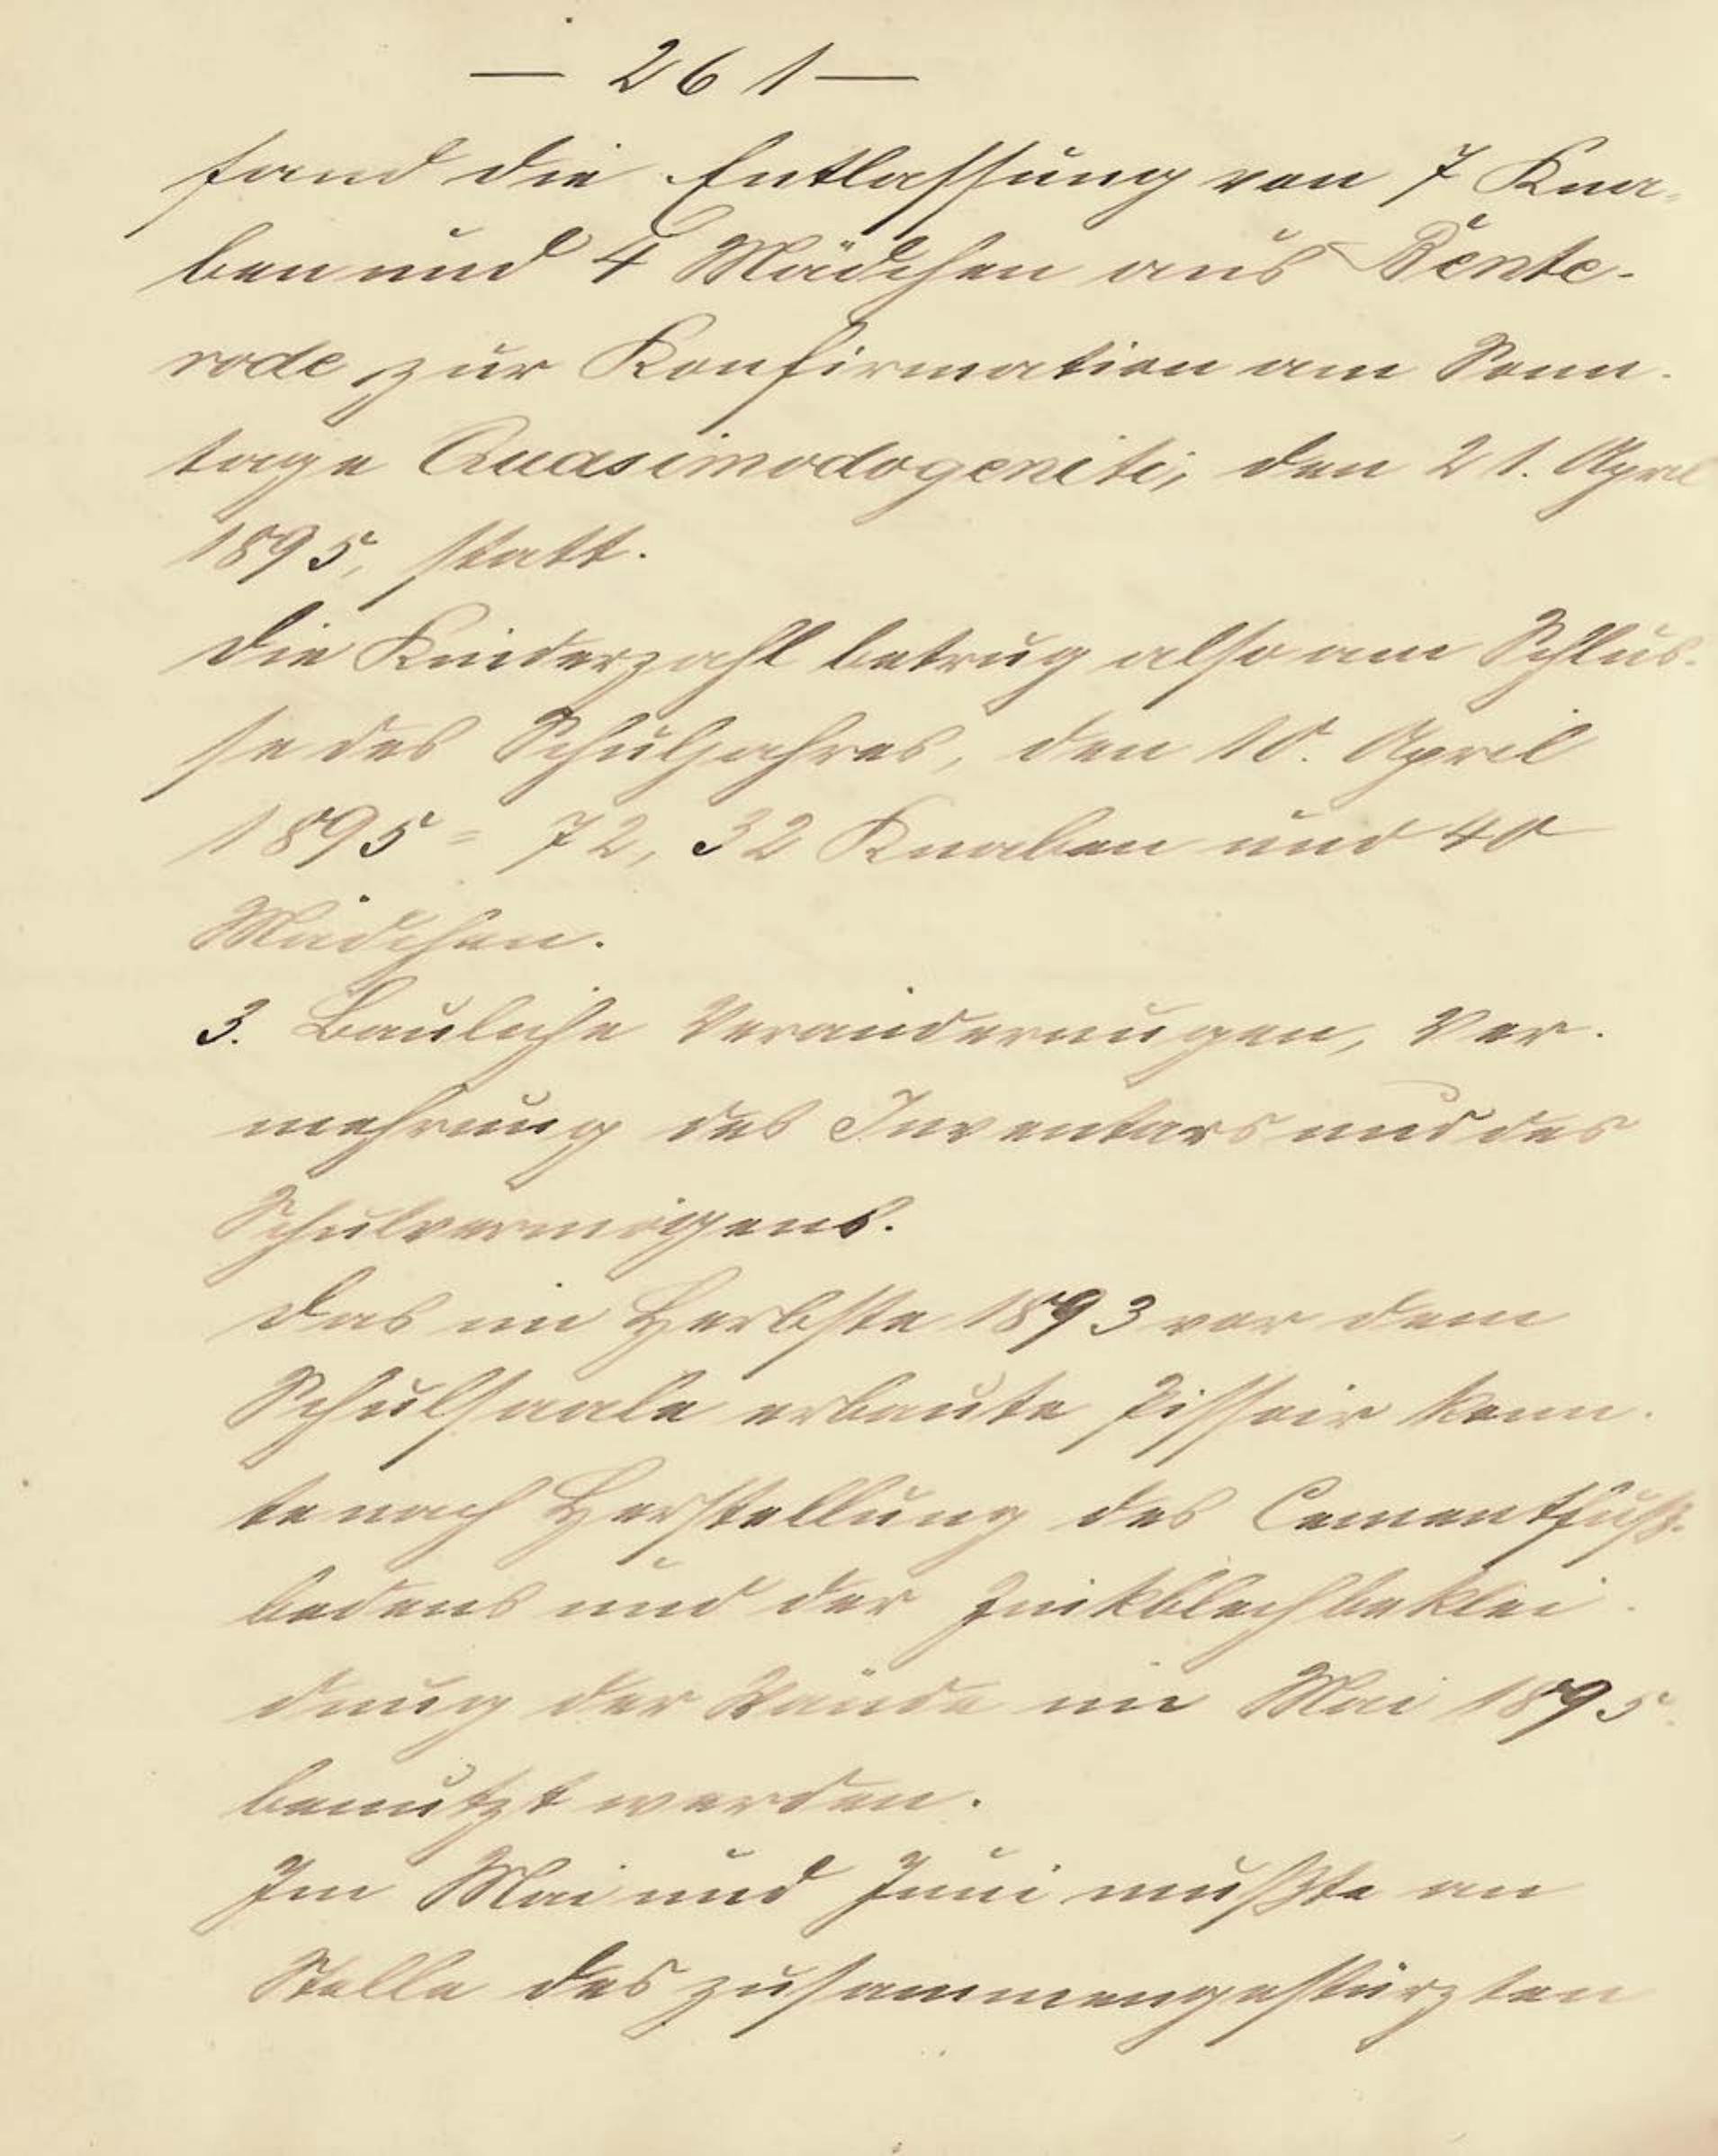 — 261 —
fand die Entlassung von 7 Kna-
ben und 4 Mädchen aus Bente-
rode zur Konfirmation am Sonn-
tage Quasimodogeniti, den 21. April
1895, statt.
Die Kinderzahl betrug also am Schlus-
se des Schuljahres, den 10. April
1895 = 72, 32 Knaben und 40
Mädchen.
3. Bauliche Veränderungen, Ver-
mehrung des Inventars und des
Schulvermögens.
Das im Herbste 1893 vor dem
Schulsaale erbaute Pissoir konn-
te nach Herstellung des Cementfuß-
bodens und der Zinkblechbeklei-
dung der Wände im Mai 1895
benutzt werden.
Im Mai und Juni mußte an
Stelle des zusammengestürzten